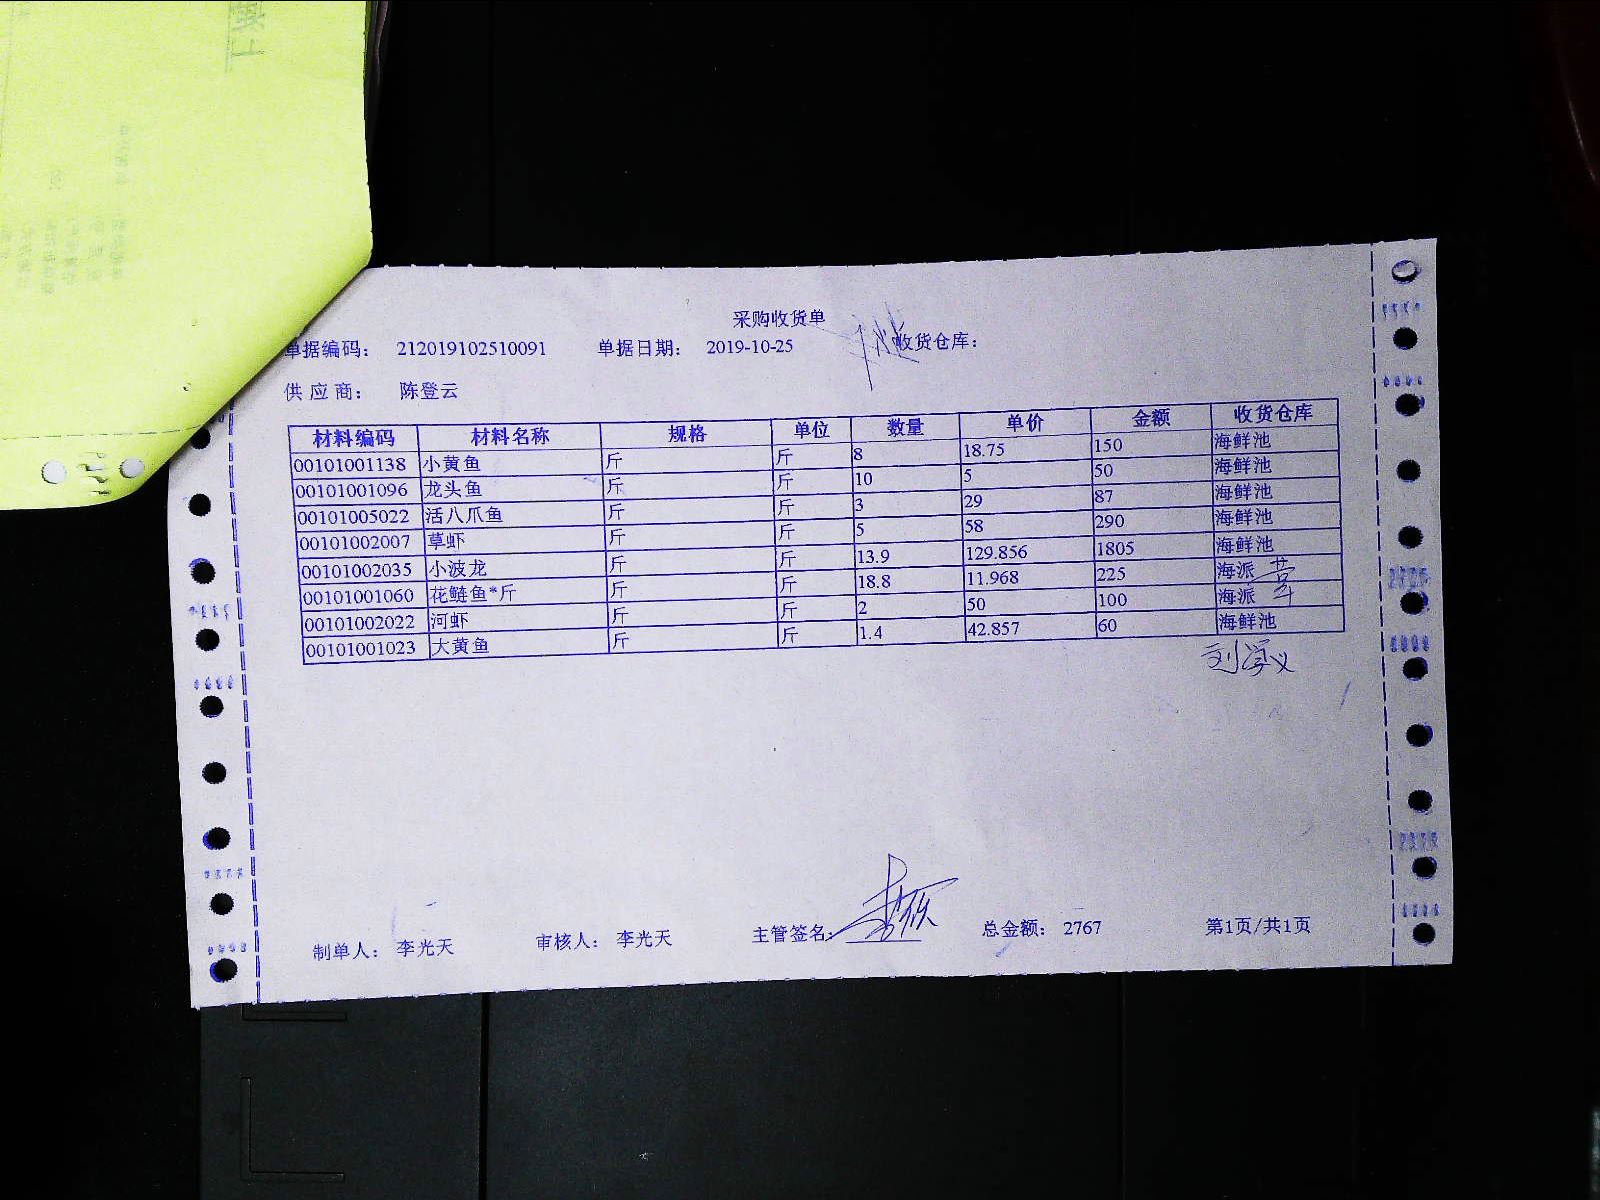 采购收货单
单据编码： 212019102510091 单据日期： 2019-10-25 收货仓库：
供应商： 陈登云
材料编码 材料名称 规格 单位 数量 单价 金额 收货仓库
00101001138 小黄鱼 斤 斤 8 18.75 150 海鲜池
00101001096 龙头鱼 斤 斤 10 5 50 海鲜池
00101005022 活八爪鱼 斤 斤 3 29 87 海鲜池
00101002007 草虾 斤 斤 5 58 290 海鲜池
00101002035 小波龙 斤 斤 13.9 129.856 1805 海鲜池
00101001060 花鲢鱼*斤 斤 斤 18.8 11.968 225 海派
00101002022 河虾 斤 斤 2 50 100 海派
00101001023 大黄鱼 斤 斤 1.4 42.857 60 海鲜池
制单人： 李光天 审核人： 李光天 主管签名： 总金额： 2767 第1页/共1页